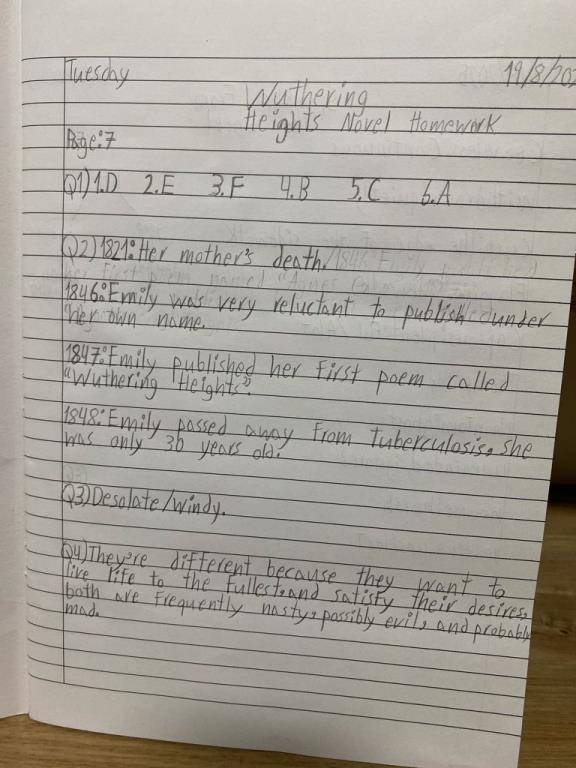 Tuesday
19/8/202
Wuthering
Heights Novel Homework
Page:7
Q1) 1.D 2.E 3.F 4.B 5.C 6.A
Q2) 1821: Her mother's death.
1846: Emily was very reluctant to publish under
her own name.
1847: Emily published her first poem called
"Wuthering Heights".
1848: Emily passed away from tuberculosis, she
was only 30 years old.
Q3) Desolate/windy.
Q4) They're different because they want to
live life to the fullest, and satisfy their desires,
both are frequently nasty, possibly evil, and probably
mad.